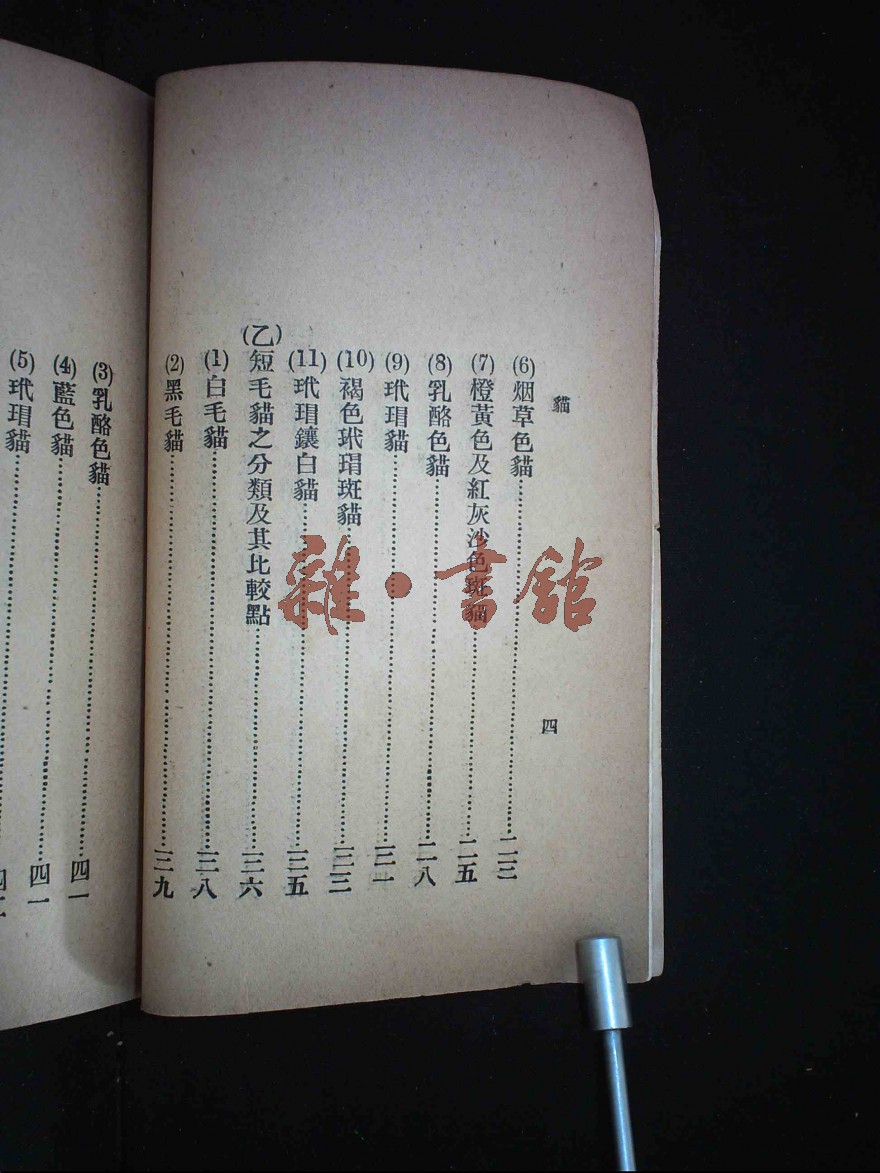 貓
四
(6)烟草色貓……二三
(7)橙黃色及紅灰沙色斑貓……二五
(8)乳酪色貓……二八
(9)玳瑁貓……三一
(10)褐色玳瑁斑貓……三三
(11)玳瑁鑲白貓……三五
(乙)短毛貓之分類及其比較點……三六
(1)白毛貓……三八
(2)黑毛貓……三九
(3)乳酪色貓……四一
(4)藍色貓……四一
(5)玳瑁貓……
雜·書館